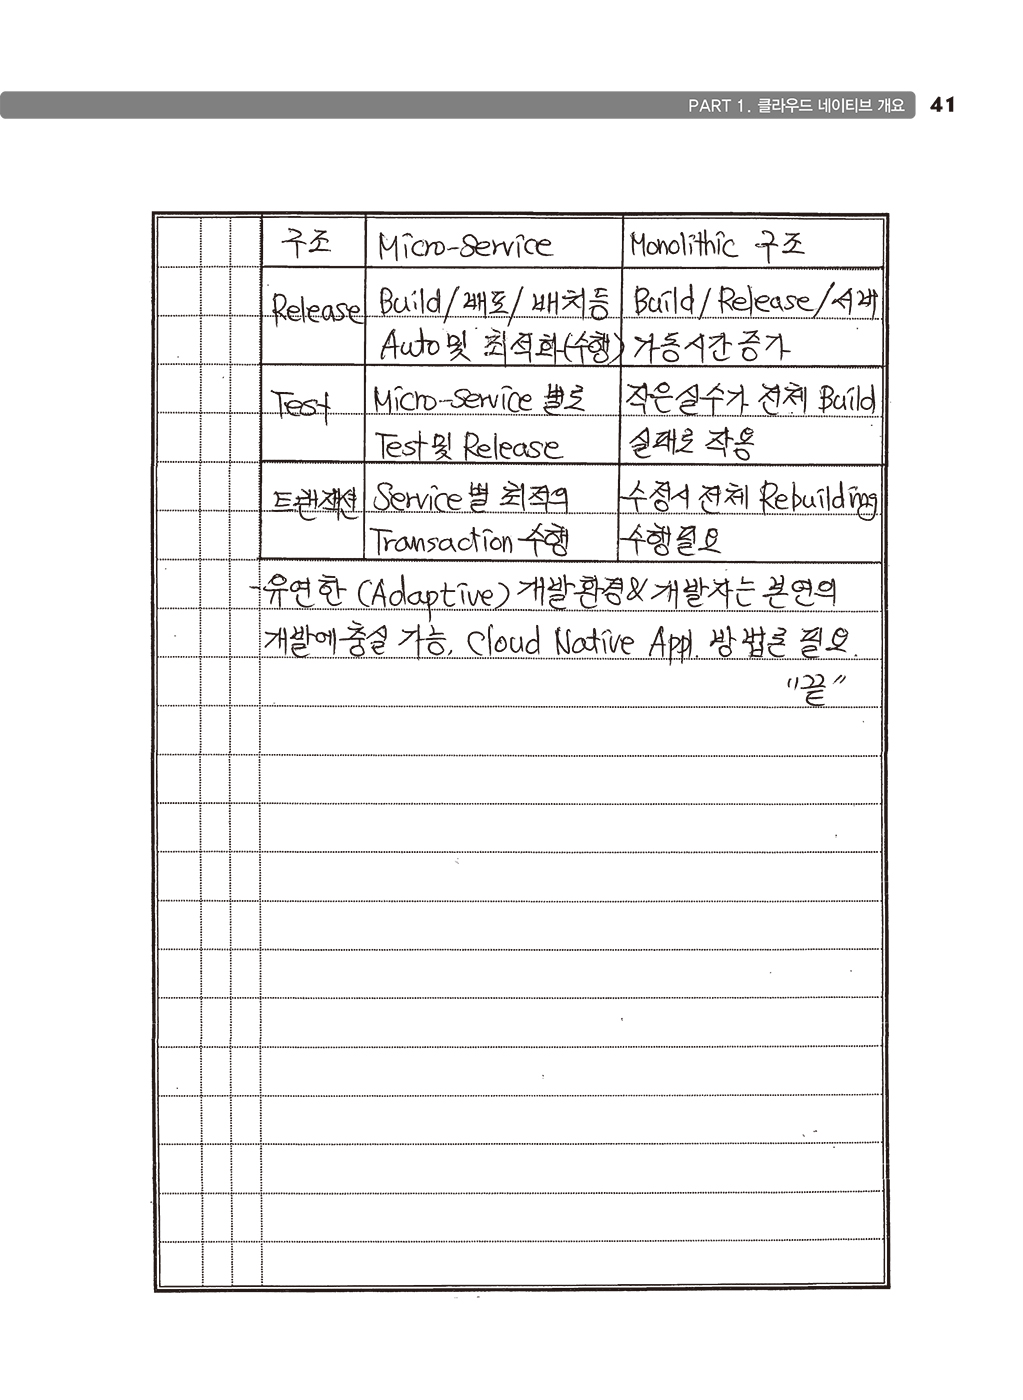 PART 1. 클라우드 네이티브 개요 41
구조 Micro-Service Monolithic 구조
Release Build/배포/배치등 Build/Release/서버
Auto 및 최적화(수행) 가동시간 증가
Test Micro-Service 별로 작은실수가 전체 Build
Test 및 Release 실패로 작용
트랜잭션 Service별 최적의 수정시 전체 Rebuilding
Transaction 수행 수행필요
-유연한 (Adaptive) 개발환경 & 개발자는 본연의
개발에 충실 가능, Cloud Native App. 방법론 필요.
"끝"